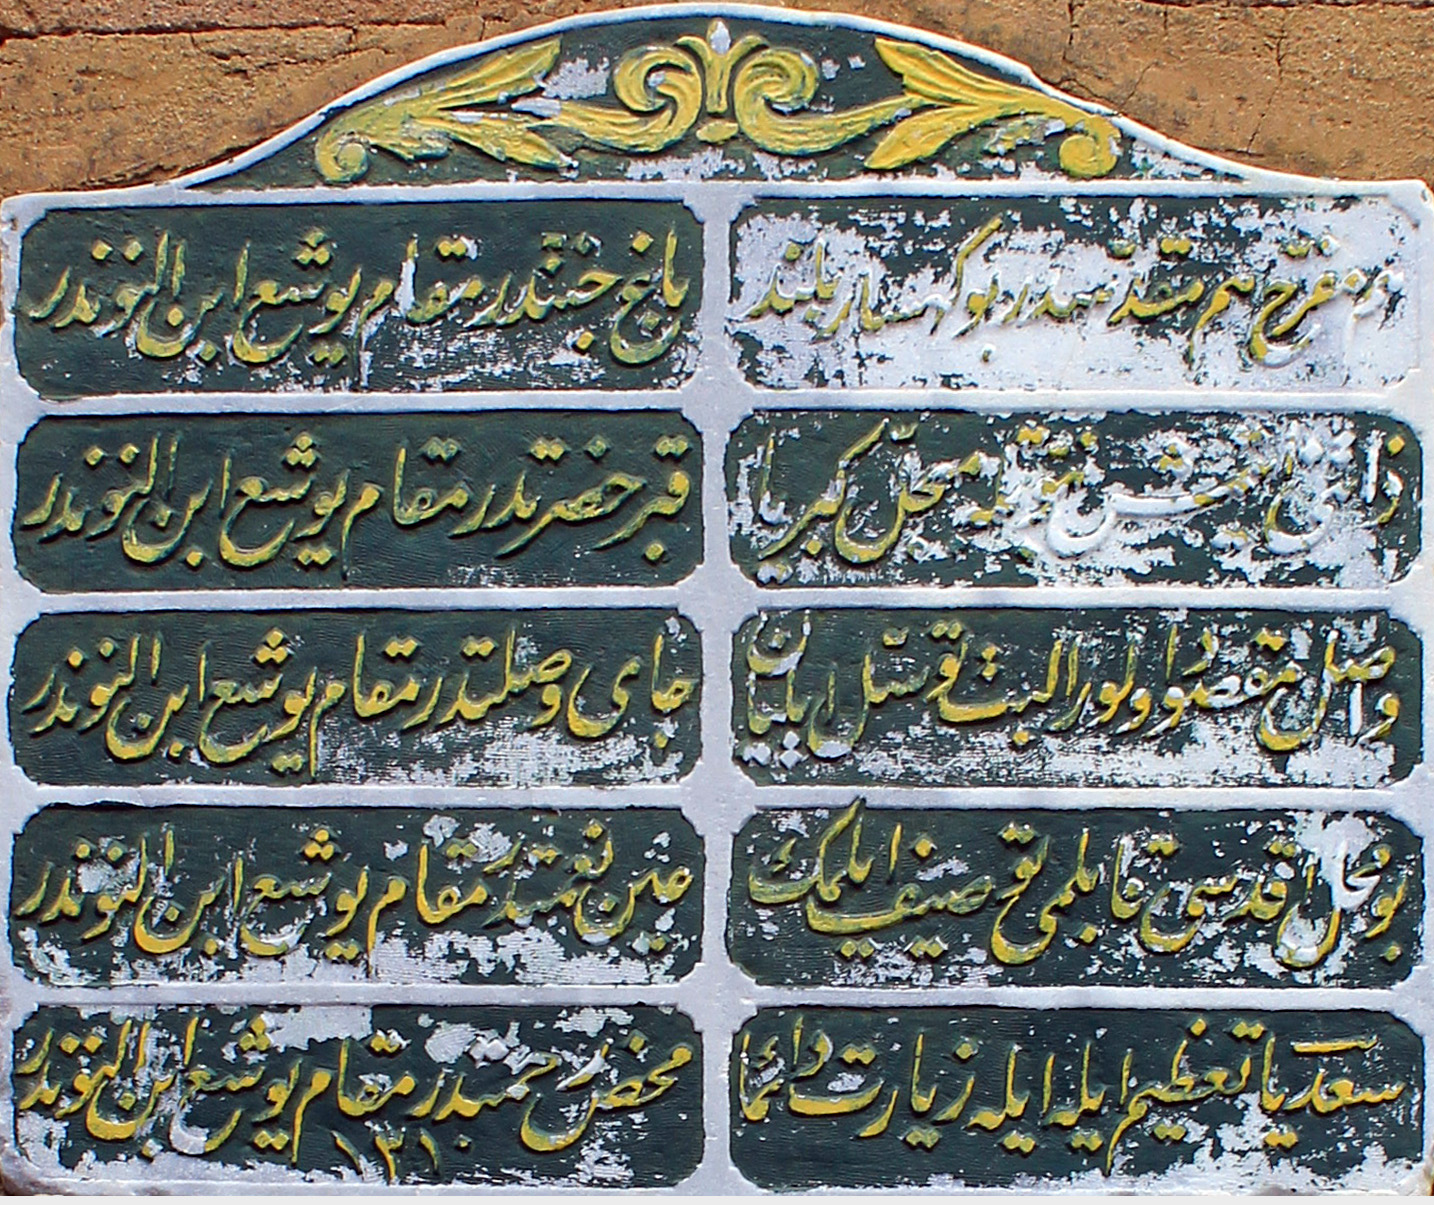 مفرح هم مقدسدر بو كهسار بلند باغ جنتدر مقام يوشع ابن النوندر
محل كبريا قبر حضرتدر مقام يوشع ابن النوندر
واصل مقصود اولور البت توسل ايليان جاى وصلتدر مقام يوشع ابن النوندر
بو محل اقدسى تا بلمى تو صيف ايلمك عين نعمتدر مقام يوشع ابن النوندر
سعديا تعظيم ايله ايله زيارت دائما محض مقام يوشع ابن النوندر
١٣١٠